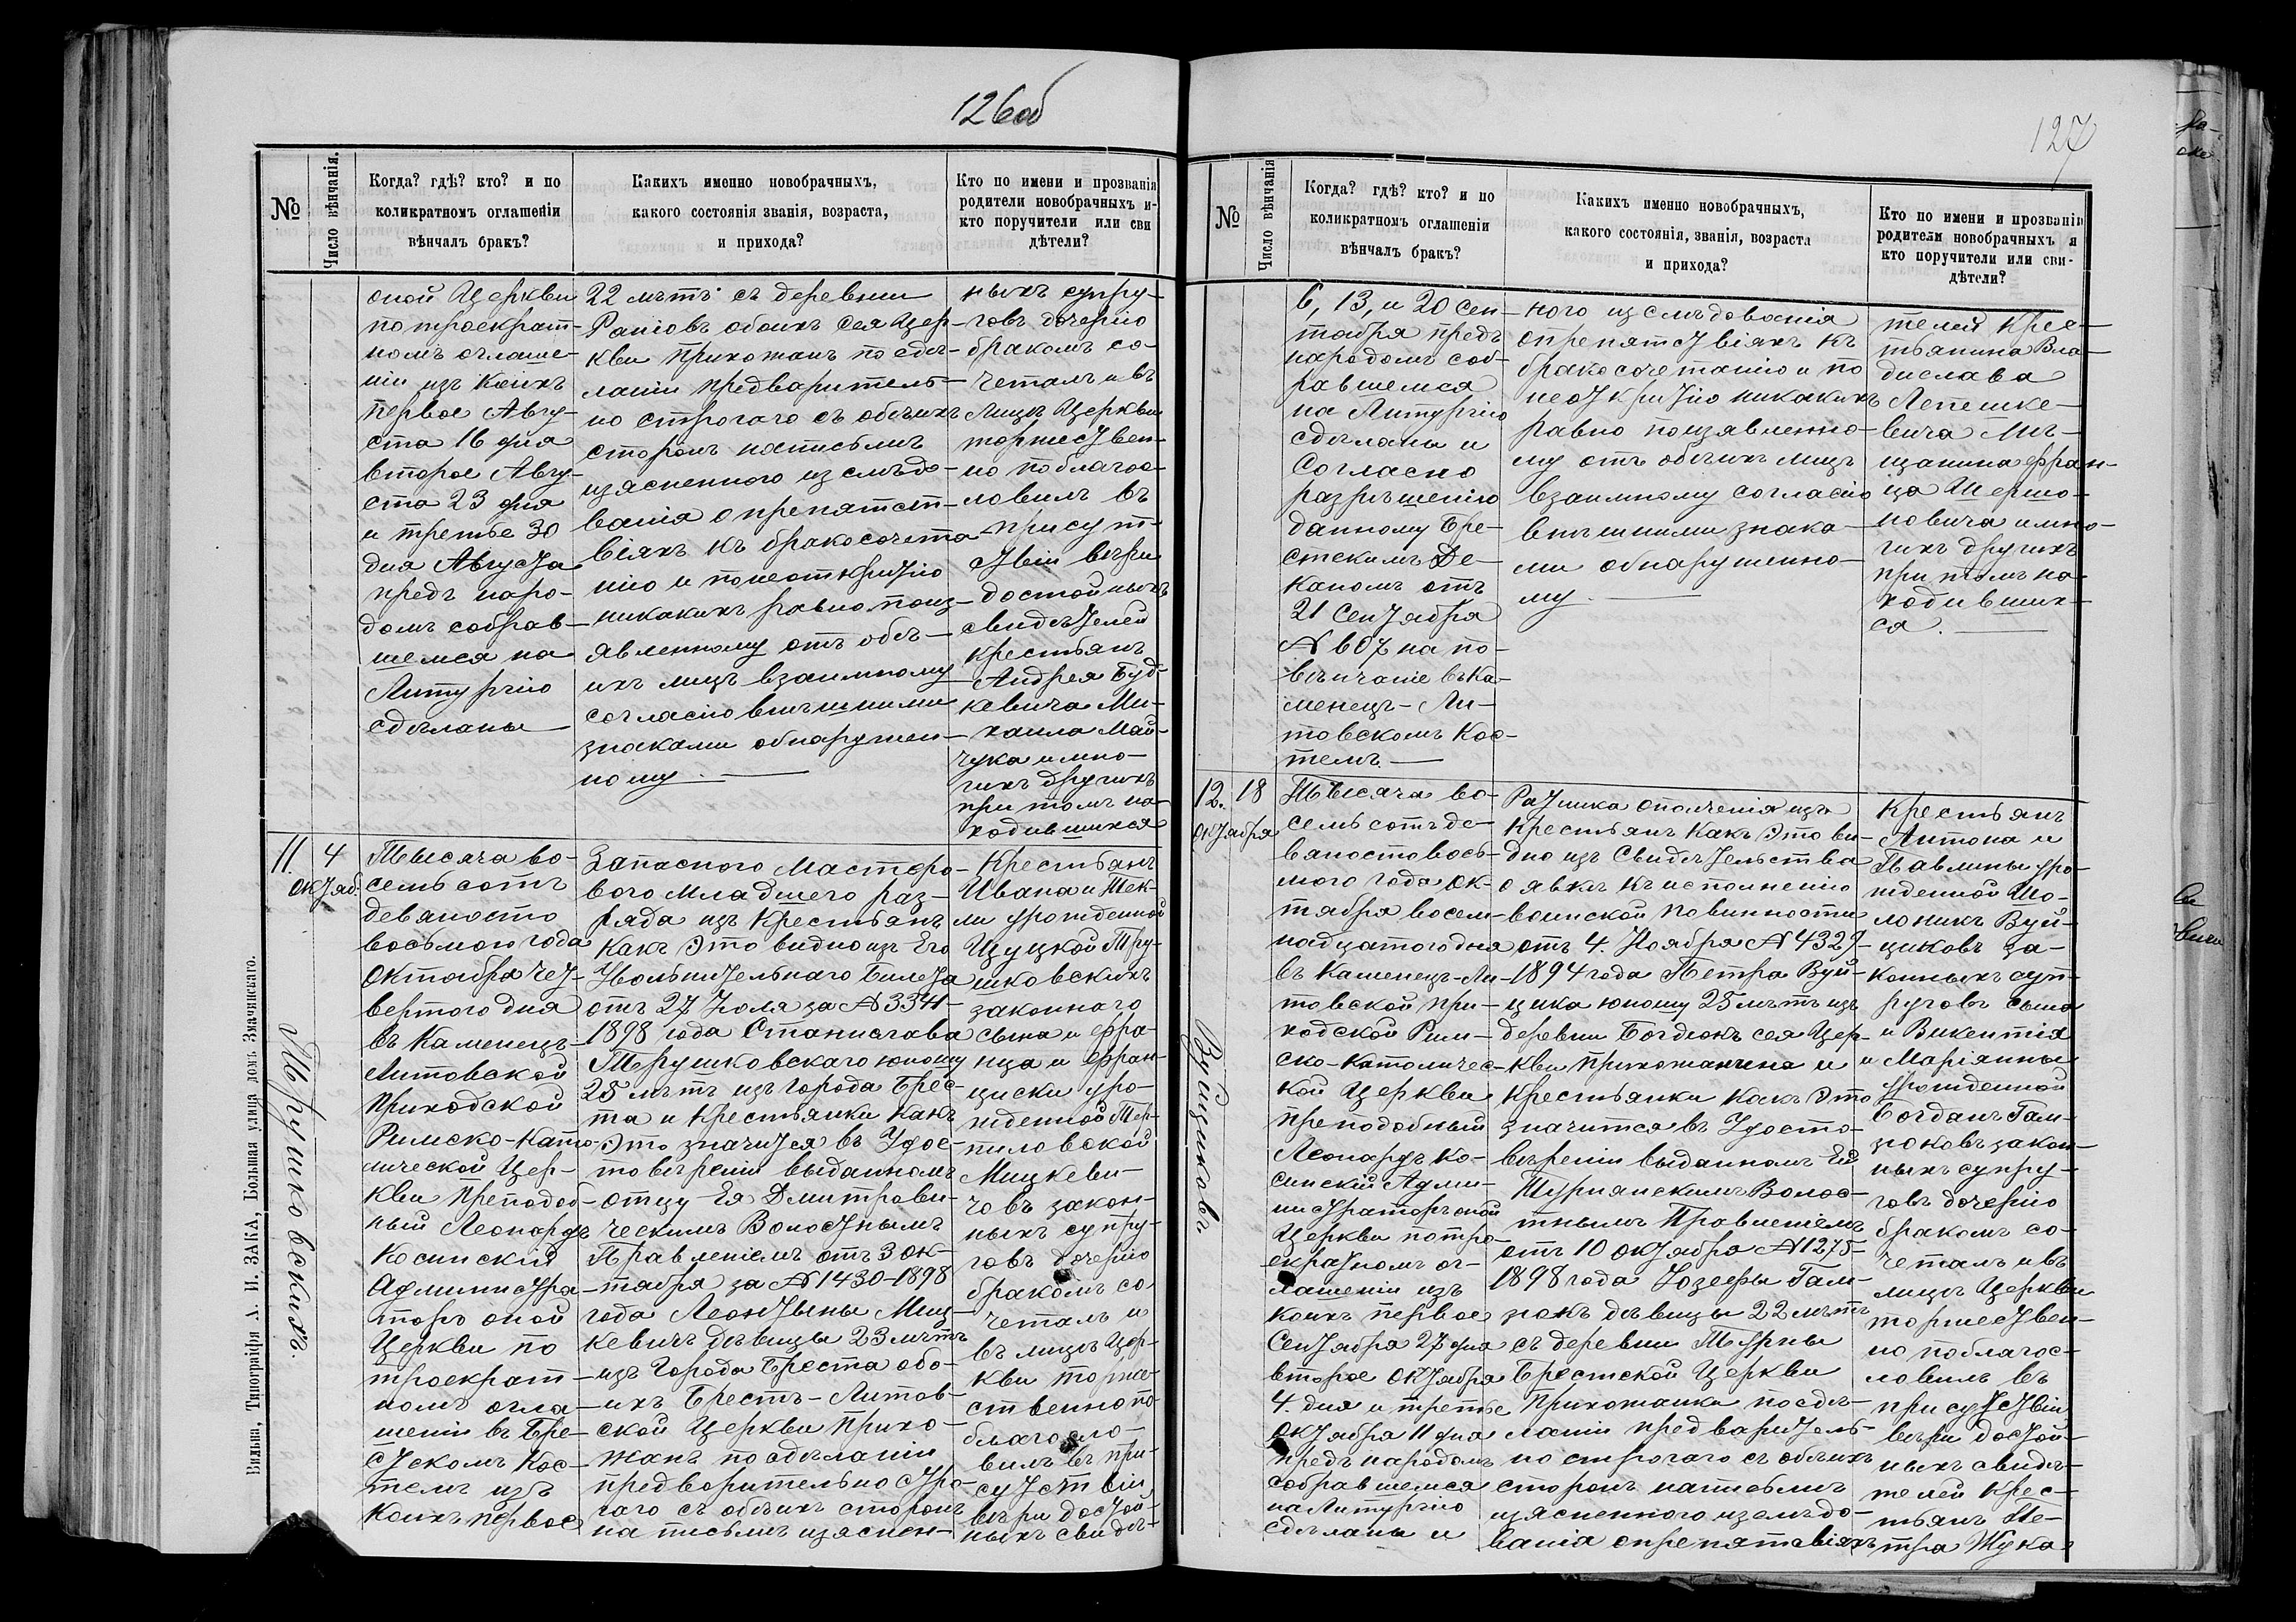 126об
№
Число вѣнчанія.
Когда? гдѣ? кто? и по
коликратномъ оглашеніи
вѣнчалъ бракъ?
Какихъ именно новобрачныхъ,
какого состоянія званія, возраста,
и прихода?
Кто по имени и прозванія
родители новобрачныхъ и
кто поручители или сви
дѣтели?
оной Церкви
по троекрат-
номъ оглаше-
ніи изъ коихъ
первое Авгу-
ста 16 дня
второе Авгу-
ста 23 дня
и третье 30
дня Августа
предъ наро-
домъ собрав-
шемся на
Литургію
сдѣланы
22 лѣтъ съ деревни
обоихъ сея Цер-
кви прихожанъ по сдѣ-
ланіи предваритель-
но строгаго съ обѣихъ
сторонъ написьмѣ
изясненного изслѣдо-
ванія о препятст-
віяхъ къ бракосочета-
нію и понеоткрытію
никакихъ равно поиз-
явленному отъ обѣ-
ихъ лицъ взаимному
согласію внѣшними
знаками обнаружен-
ному
ныхъ супру-
говъ дочерію
бракомъ со-
четалъ и въ
лицѣ Церкви
торжествен-
но поблагос-
ловилъ въ
присут-
ствіи вѣры
достойныхъ
свидѣтелей
крестьянъ
Андрея Буд-
кевича Ми-
хаила Май-
чука и мно-
гихъ другихъ
при томъ на-
ходившихся
11.
4
Октяб.
Трушковскихъ.
Тысяча во-
семьсотъ
девяносто
восьмого года
Октября чет-
вертого дня
въ Каменецъ-
Литовской
Приходской
Римско-Като-
лической Цер-
кви преподоб-
ный Леонардъ
Косинскій
Администра-
торъ оной
Церкви по
троекрат-
номъ огла-
шеніи въ Бре-
стскомъ Кос-
телѣ изъ
коихъ первое
Запасного мастеро-
вого младшего раз-
ряда изъ крестьянъ
какъ это видно изъ Его
Увольнительнаго Билета
отъ 27 Іюля за № 3341-
1898 года Станислава
Трушковскаго юношу
25 лѣтъ изъ города Брес-
та и Крестьянки какъ
это значится въ Удос-
товѣреніи выданномъ
отцу Ея Дмитрови-
ческимъ Волостнымъ
Правленіемъ отъ 3 ок-
тября за № 1430-1898
года Леонтыны Миц-
кевичъ дѣвицы 23 лѣтъ
изъ Города Бреста обо-
ихъ Брестъ-Литов-
ской Церкви прихо-
жанъ по сдѣланіи
предворительно стро-
гаго съ обѣихъ сторонъ
на письмѣ изяснен-
Крестьянъ
Ивана и Тек-
ли урожденной
Цуцкой Тру-
шковскихъ
законного
сына и Фра-
нца и Фран-
циски уро-
жденной Тер-
пиловской
Мицкеви-
човъ закон-
ныхъ супру-
говъ дочерію
бракомъ со
четалъ и
въ лицѣ Цер-
кви торже-
ственно по
благосло-
вилъ въ при-
сутствіи
вѣры достой-
ныхъ свидѣ-
Вильна, Типографія А. И. ЗАКА, Большая улица домъ Значинскаго.
127
№
Число вѣнчанія
Когда? гдѣ? кто? и по
коликратномъ оглашеніи
вѣнчалъ бракъ?
Какихъ именно новобрачныхъ,
какого состоянія, званія, возраста
и прихода?
Кто по имени и прозваніи
родители новобрачныхъ и
кто поручители или сви-
дѣтели?
6, 13, и 20 Сен-
тября предъ
народомъ соб-
равшемся
на Литургію
сдѣланы и
Согласно
разрѣшенію
данному Бре-
стскимъ Де-
каномъ отъ
21 Сентября
№ 607 на по-
вѣнчаніе въ Ка-
менецъ-Ли-
товскомъ Кос-
телѣ
ного изслѣдованія
опрепятствіяхъ къ
бракосочетанію и по
неоткрытію никакихъ
равно поизявленно-
му отъ обѣихъ лицъ
взаимному согласію
внѣшними знака-
ми обнаруженно-
му
телей крес-
тьянина Вла-
дислава
Лепешке-
вича мѣ-
щанина Фран-
ца Шершо-
новича и мно-
гихъ другихъ
при томъ на-
ходивших-
ся.
12.
18
октября
Вуйциковъ
Тысяча во-
семьсотъ де-
вяностовось-
мого года Ок-
тября восем-
надцатого дня
въ Каменецъ-Ли-
товской при-
ходской Рим-
ско-Католичес-
кой Церкви
преподобный
Леонардъ Ко-
синскій Адми-
нистраторъ оной
Церкви потро-
екратномъ ог-
лашеніи изъ
коихъ первое
Сентября 27 дня
второе октября
4 дня и третье
Октября 11 дня
предъ народомъ
собравшемся
на Литургію
сдѣланы и
Ратника ополченія изъ
крестьянъ какъ это ви-
дно изъ Свидѣтельства
о явкѣ къ исполненію
воинской повинности
отъ 4. Ноября № 4329-
1894 года Петра Вуй-
цика юношу 25 лѣтъ изъ
деревни Богдюкъ сея Цер-
кви прихожанина и
крестьянки какъ это
значится въ Удосто-
вѣреніи выданномъ Ей
Турнянскимъ Волос-
тнымъ Правленіемъ
отъ 10 октября № 1275-
1898 года Іозефы Гам-
зюкъ дѣвицы 22 лѣтъ
съ деревни Турны
Брестской Церкви
Прихожанки по сдѣ-
ланіи предваритель-
но строгаго съ обѣихъ
сторонъ написьмѣ
изясненного изслѣдо-
ванія опрепятствіяхъ
Крестьянъ
Антона и
Павлины уро-
жденной
Вуй-
циковъ за-
конныхъ суп-
руговъ сына
и Викентія
и Маріянны
урожденной
Богданъ Гам-
зюковъ закон-
ныхъ супру-
говъ дочерію
бракомъ со-
четалъ и въ
лицѣ Церкви
торжествен-
но поблагос-
ловилъ въ
присутствіи
вѣры достой-
ныхъ свидѣ-
телей крес-
тьянъ Пе-
тра Жука